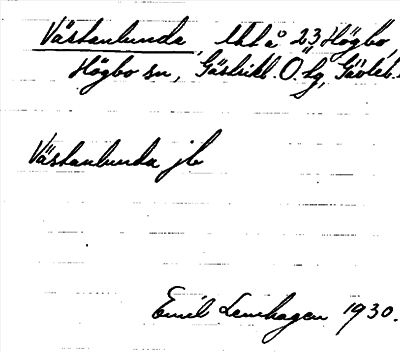 Västanlunda, lht å 23 Högbo,
Högbo sn, Gästrikl. Ö. lg, Gävleb.
Västanlunda jb
Emil Lenhagen 1930.